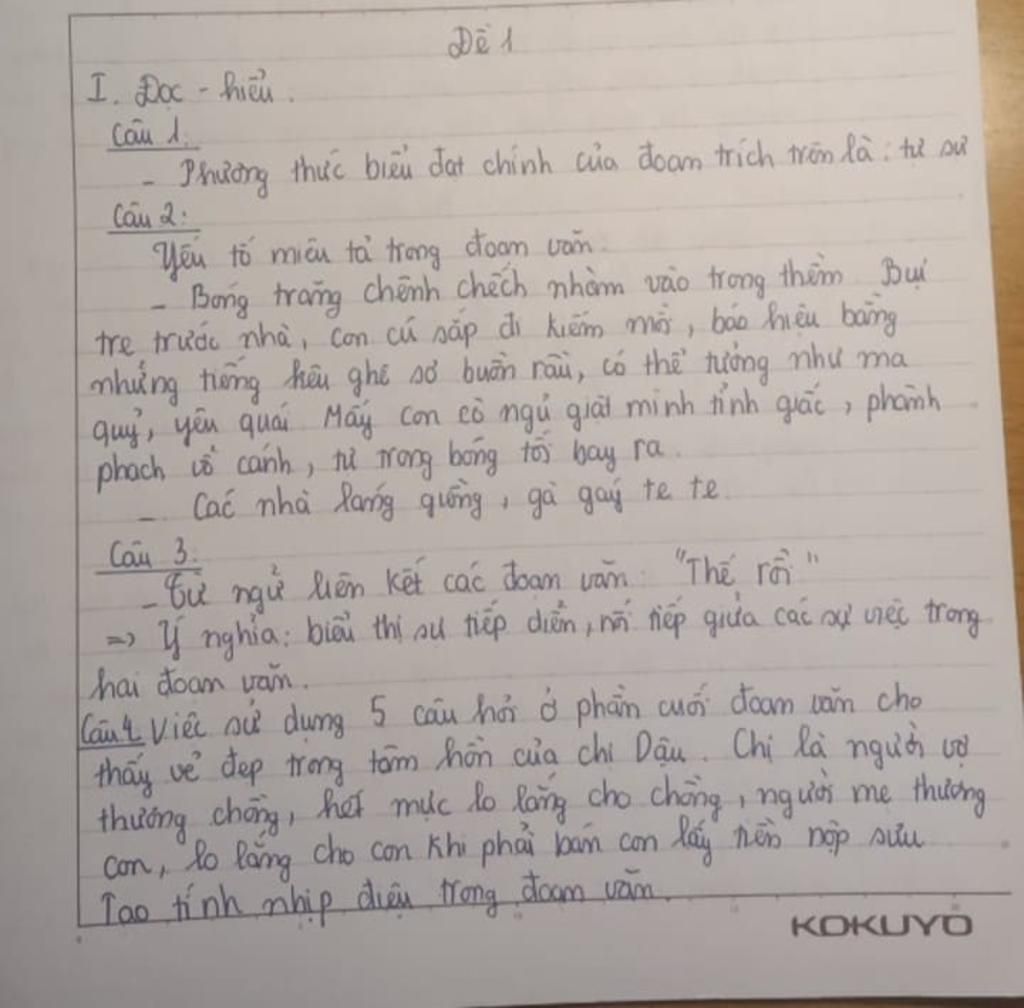 Đề 1
I. Đọc - hiểu.
Câu 1.
- Phương thức biểu đạt chính của đoạn trích trên là: tự sự
Câu 2:
Yếu tố miêu tả trong đoạn văn:
- Bóng trăng chênh chếch nhòm vào trong thềm Bụi
tre trước nhà, con cú sắp đi kiếm mồi, báo hiệu bằng
những tiếng kêu ghê sợ buồn rầu, có thể tưởng như ma
quỷ, yêu quái Mấy con cò ngủ giật mình tỉnh giấc, phành
phạch vỗ cánh, từ trong bóng tối bay ra.
- Các nhà láng giềng, gà gáy te te.
Câu 3:
- Từ ngữ liên kết các đoạn văn: "Thế rồi"
=> Ý nghĩa: biểu thị sự tiếp diễn, nối tiếp giữa các sự việc trong
hai đoạn văn.
Câu 4. Việc sử dụng 5 câu hỏi ở phần cuối đoạn văn cho
thấy vẻ đẹp trong tâm hồn của chị Dậu. Chị là người vợ
thương chồng, hết mực lo lắng cho chồng, người mẹ thương
con, lo lắng cho con khi phải bán con lấy tiền nộp sưu
Tạo tính nhịp điệu trong đoạn văn.
KOKUYO